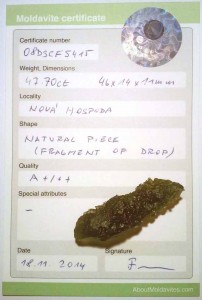 Moldavite certificate
Certificate number
08DSCF5415
Weight, Dimensions
47.70ct 46x19x11mm
Locality
NOVÁ HOSPODA
Shape
NATURAL PIECE
(FRAGMENT OF DROP)
Quality
A+/++
Special attributes
-
Date Signature
18.11.2014
AboutMoldavites.com